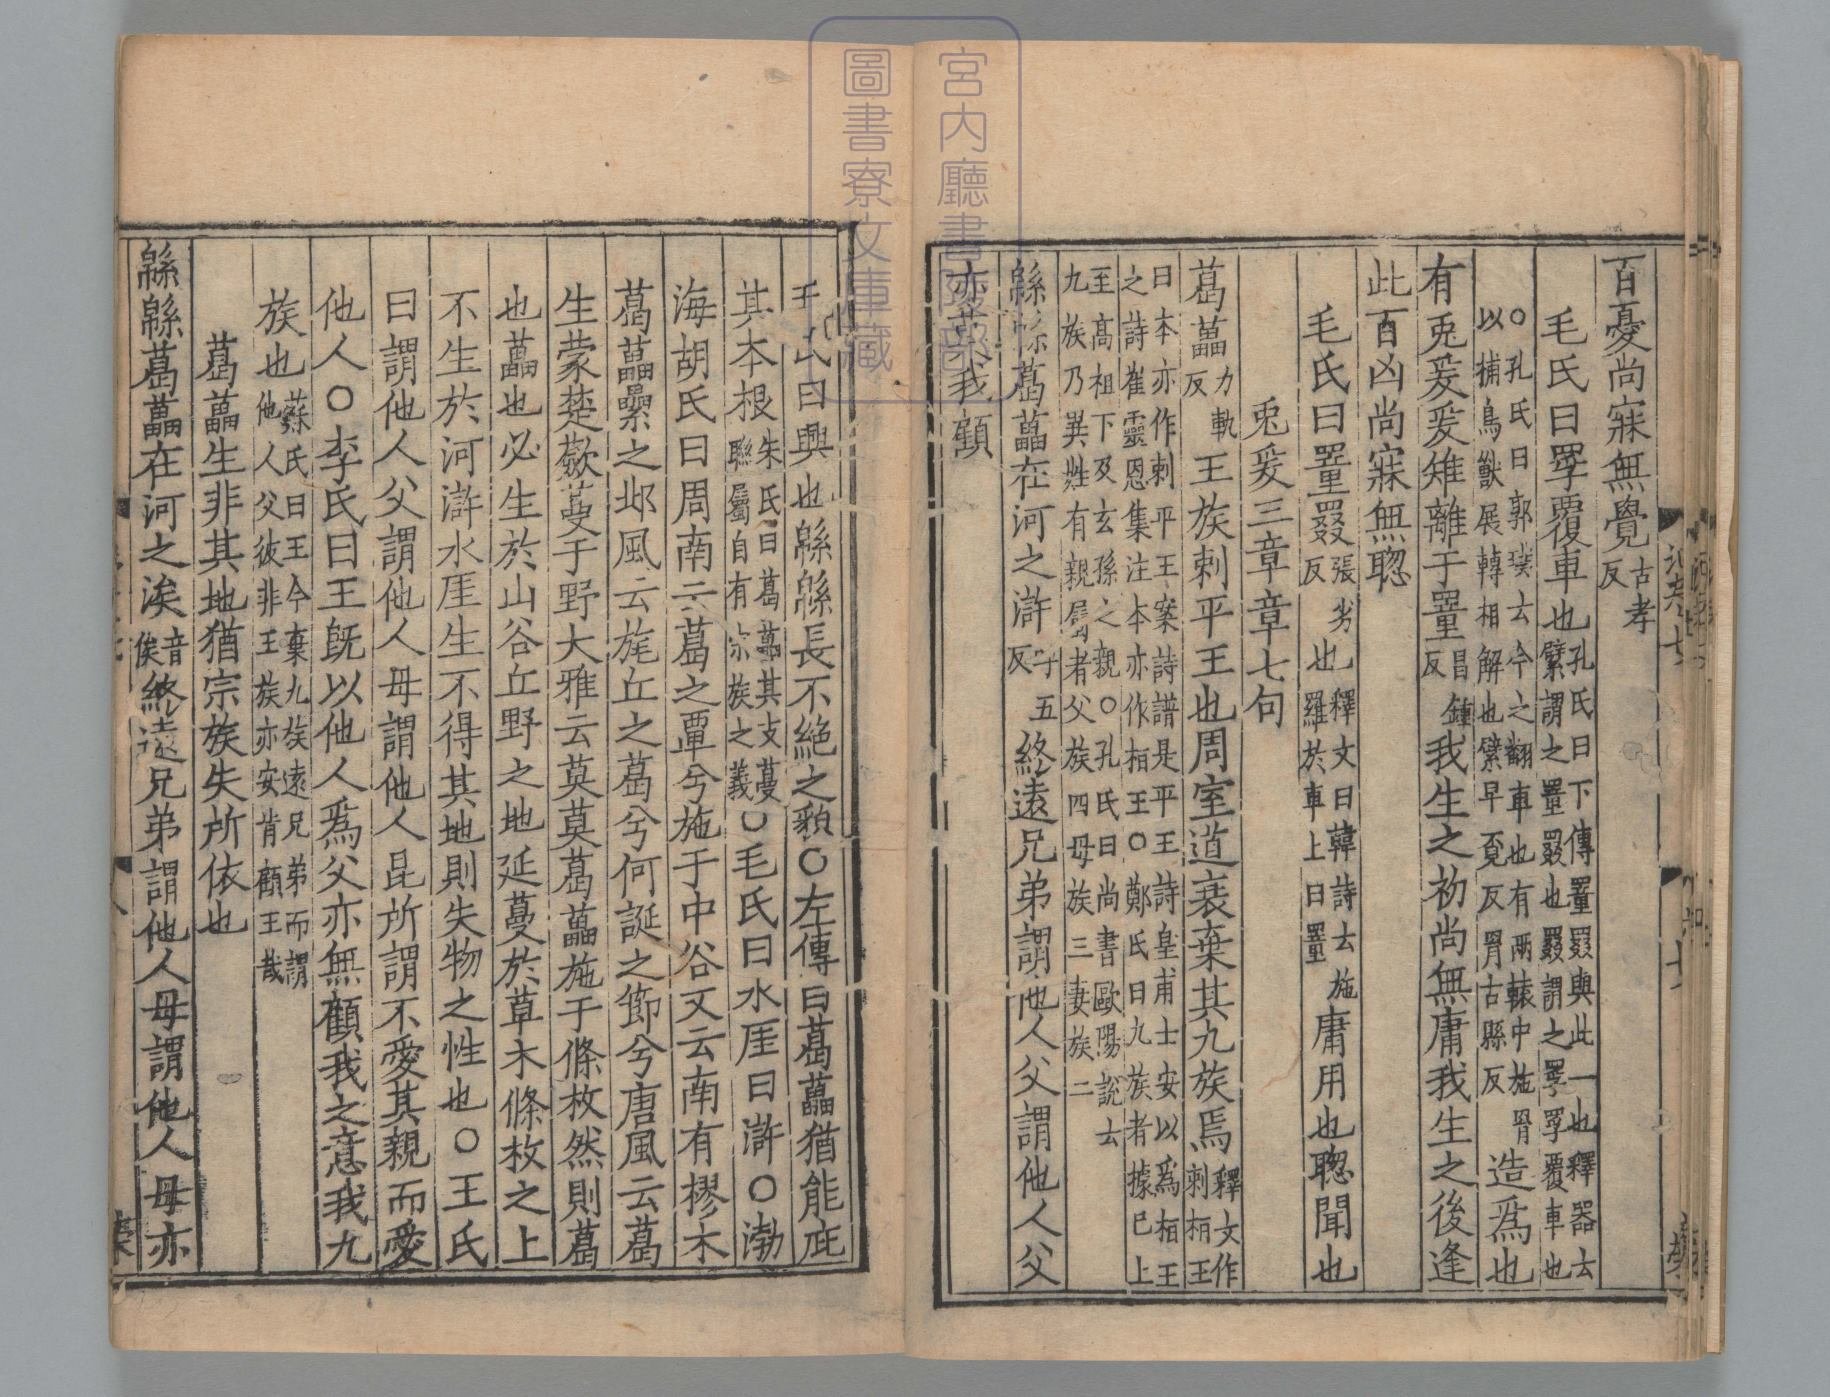 百憂尚寐無覺古孝反
毛氏曰罦覆車也孔氏曰下傳罿罬與此一也釋器云繴謂之罿罬也罬謂之罦罦覆車也
○孔氏曰郭璞云今之翻車也有兩轅中施罥以捕鳥獸展轉相解也繴早覔反罥古縣反造爲也
有兎爰爰雉離于罿昌鍾反我生之初尚無庸我生之後逢
此百凶尚寐無聦
毛氏曰罿罬張劣反也釋文曰韓詩云施羅於車上曰罿庸用也聦聞也
兎爰三章章七句
葛藟力軌反王族刺平王也周室道衰棄其九族焉釋文作刺桓王
曰本亦作刺平王案詩譜是平王詩皇甫士安以爲桓王之詩崔靈恩集注本亦作桓王○鄭氏曰九族者據已上
至髙祖下及玄孫之親○孔氏曰尚書歐陽說云九族乃異姓有親屬者父族四母族三妻族二
緜緜葛藟在河之滸呼五反終逺兄弟謂他人父謂他人父
亦莫我顧
毛氏曰興也緜緜長不絶之貌○左傳曰葛藟猶能庇
其本根朱氏曰葛藟其支蔓聯屬自有宗族之義○毛氏曰水厓曰滸○渤
海胡氏曰周南云葛之覃兮施于中谷又云南有樛木
葛藟纍之邶風云旄丘之葛兮何誕之節兮唐風云葛
生蒙楚蘞蔓于野大雅云莫莫葛藟施于條枚然則葛
也藟也必生於山谷丘野之地延蔓於草木條枚之上
不生於河滸水厓生不得其地則失物之性也○王氏
曰謂他人父謂他人母謂他人昆所謂不愛其親而愛
他人○李氏曰王旣以他人爲父亦無顧我之意我九
族也蘇氏曰王今棄九族逺兄弟而謂他人父彼非王族亦安肯顧王哉
葛藟生非其地猶宗族失所依也
緜緜葛藟在河之涘音俟終逺兄弟謂他人母謂他人母亦
宮内廳書陵部
圖書寮文庫藏